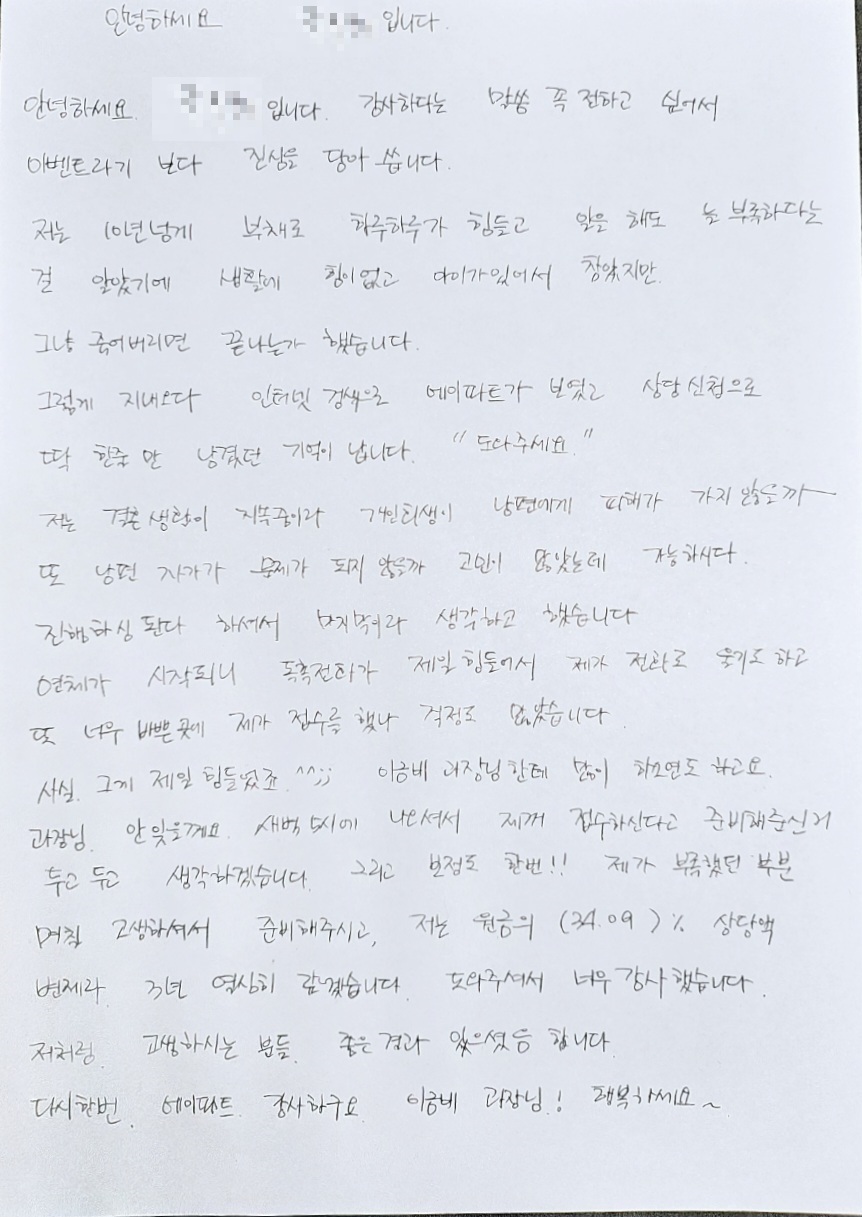 안녕하세요 입니다.
안녕하세요. 입니다. 감사하다는 말씀 꼭 전하고 싶어서
이벤트라기 보다 진심을 담아 씁니다.
저는 10년넘게 부채로 하루하루가 힘들고 일을 해도 늘 부족하다는
걸 알았기에 생활에 힘이없고 아이가있어서 참았지만.
그냥 죽어버리면 끝나는가 했습니다.
그렇게 지내오다 인터넷 검색으로 에이파트가 보였고 상담신청으로
딱 한줄 만 남겼던 기억이 납니다. "도와주세요."
저는 결혼생활이 지속중이라 개인회생이 남편에게 피해가 가지 않을까
또 남편 자가가 문제가 되지 않을까 고민이 많았는데 가능하시다.
진행하심 된다 하셔서 마지막이라 생각하고 했습니다
연체가 시작되니 독촉전화가 제일 힘들어서 제가 전화로 울기도 하고
또 너무 바쁜곳에 제가 접수를 했나 걱정도 많았습니다.
사실. 그게 제일 힘들었죠. ^^;; 이금비 과장님한테 많이 하소연도 하고요.
과장님. 안잊을께요. 새벽 5시에 나오셔서 제꺼 접수하신다고 준비해주신거
두고 두고 생각하겠습니다. 그리고 보정도 한번!! 제가 부족했던 부분
며칠 고생하셔서 준비해주시고, 저는 원금의 (34.09)% 상당액
변제라. 3년 열심히 갚겠습니다. 도와주셔서 너무감사했습니다.
저처럼. 고생하시는 분들. 좋은결과 있으셨음 합니다.
다시한번. 에이파트. 감사하구요. 이금비 과장님! 행복하세요~